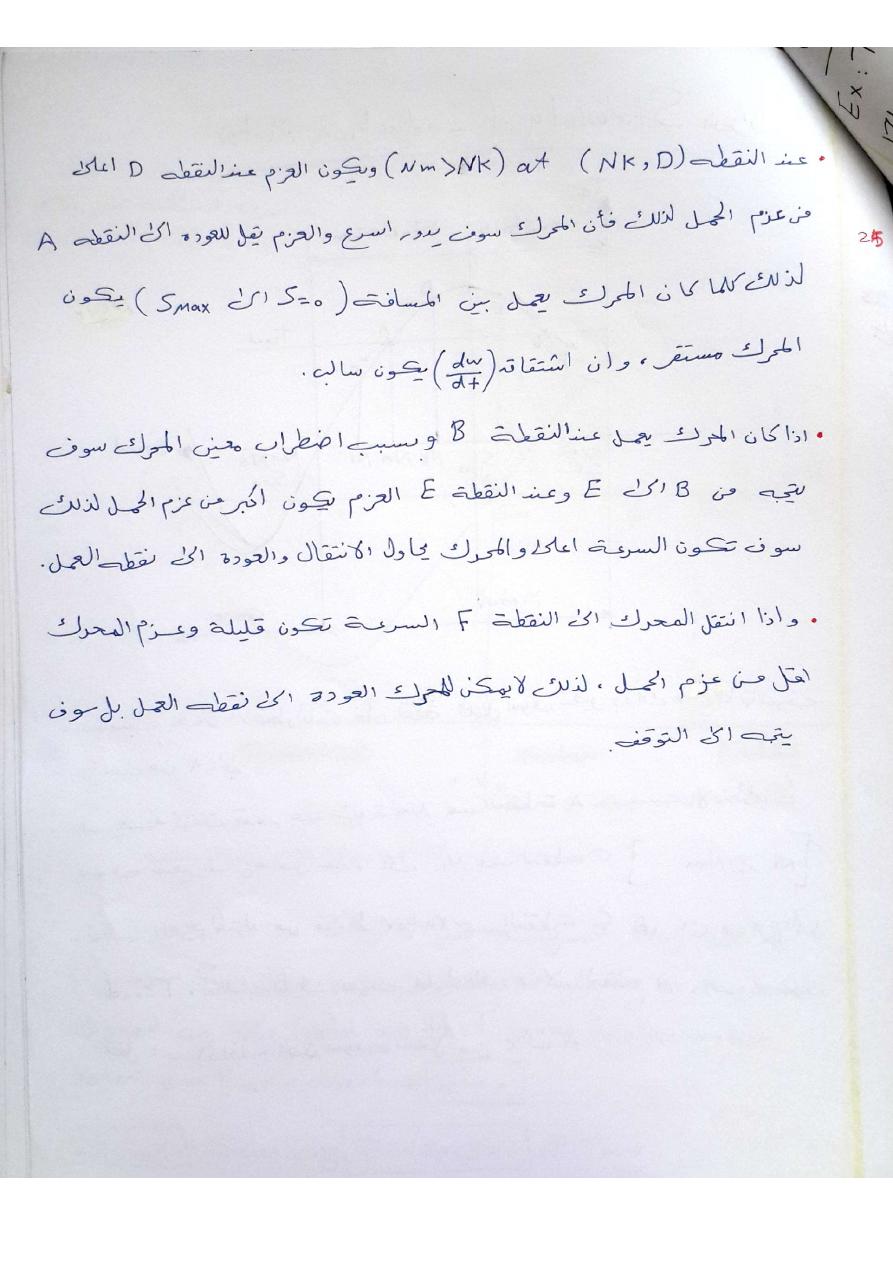 Ex:
• عند النقطه (Nk,D) at (Nm>Nk) ويكون العزم عند النقطه D اعلى
من عزم الحمل لذلك فأن المحرك سوف يدور اسرع والعزم يقل للعوده الى النقطه A
25
لذلك كلما كان المحرك يعمل بين المسافة (S=0 الى Smax) يكون
المحرك مستقر، وان اشتقاقه (dw/dt) يكون سالب.
• اذا كان المحرك يعمل عند النقطة B وبسبب اضطراب معين المحرك سوف
يتجه من B الى E وعند النقطة E العزم يكون اكبر من عزم الحمل لذلك
سوف تكون السرعة اعلى والمحرك يحاول الانتقال والعودة الى نقطه العمل.
• واذا انتقل المحرك الى النقطة F السرعة تكون قليلة وعزم المحرك
اقل من عزم الحمل، لذلك لايمكن للمحرك العوده الى نقطه العمل بل سوف
يتجه الى التوقف.